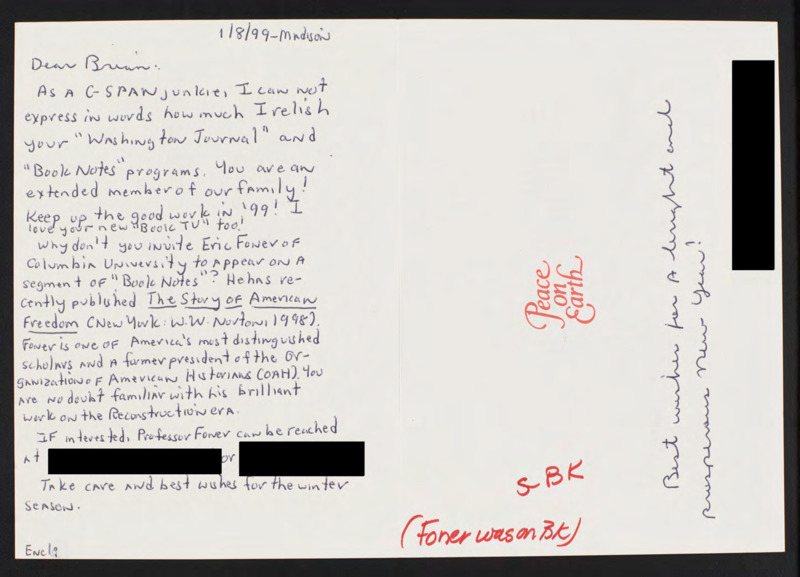 1/8/99-Madison
Dear Brian:
As a C-SPAN junkie, I can not
express in words how much I relish
your "Washington Journal" and
"Book Notes" programs. You are an
extended member of our family!
Keep up the good work in '99! I
love your new "Book TV" too!
Why don't you invite Eric Foner of
Columbia University to appear on a
segment of "Book Notes"? He has re-
cently published The Story of American
Freedom (New York: W.W. Norton, 1998).
Foner is one of America's most distinguished
scholars and a former president of the Or-
ganization of American Historians (OAH). You
are no doubt familiar with his brilliant
work on the Reconstruction era.
If interested, Professor Foner can be reached
at or
Take care and best wishes for the winter
season.
Encl:
Peace
on
Earth
BK
(Foner was on BK)
Best wishes for a bright and
prosperous New Year!